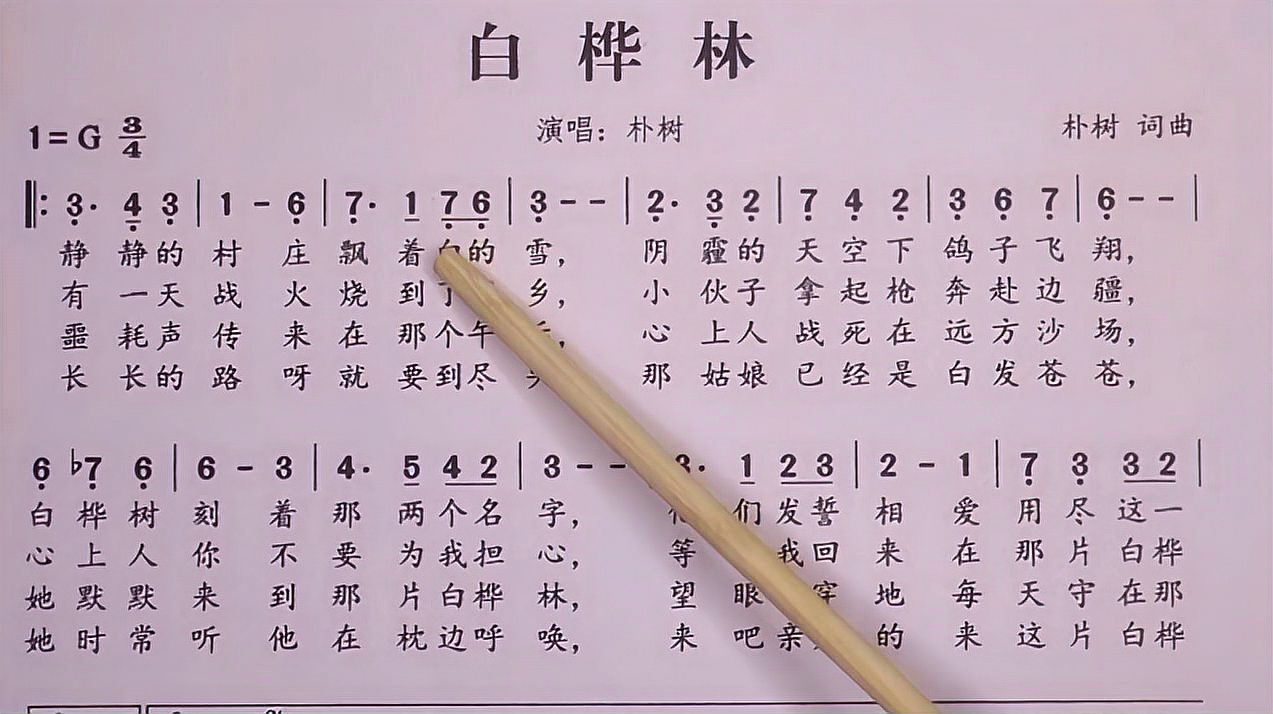 白桦林
1=G 3/4
演唱：朴树
朴树 词曲
‖: 3· 4 3 | 1 - 6 | 7· 1 7 6 | 3 - - | 2· 3 2 | 7 4 2 | 3 6 7 | 6 - - |
静 静的 村 庄 飘 着 的 雪， 阴 霾的 天 空 下 鸽 子 飞 翔，
有 一天 战 火 烧 到 乡， 小 伙子 拿 起 枪 奔 赴 边 疆，
噩 耗声 传 来 在 那个午 心 上人 战 死 在 远 方 沙 场，
长 长的 路 呀 就 要到尽 那 姑娘 已 经 是 白 发 苍 苍，
6 ♭7 6 | 6 - 3 | 4· 5 4 2 | 3 - - 3· 1 2 3 | 2 - 1 | 7 3 3 2 |
白 桦 树 刻 着 那 两个名 字， 们发誓 相 爱 用 尽 这一
心 上 人 你 不 要 为我担 心， 等 我回 来 在 那 片 白桦
她 默 默 来 到 那 片白桦 林， 望 眼 穿 地 每 天 守 在那
她 时 常 听 他 在 枕边呼 唤， 来 吧亲 的 来 这 片 白桦